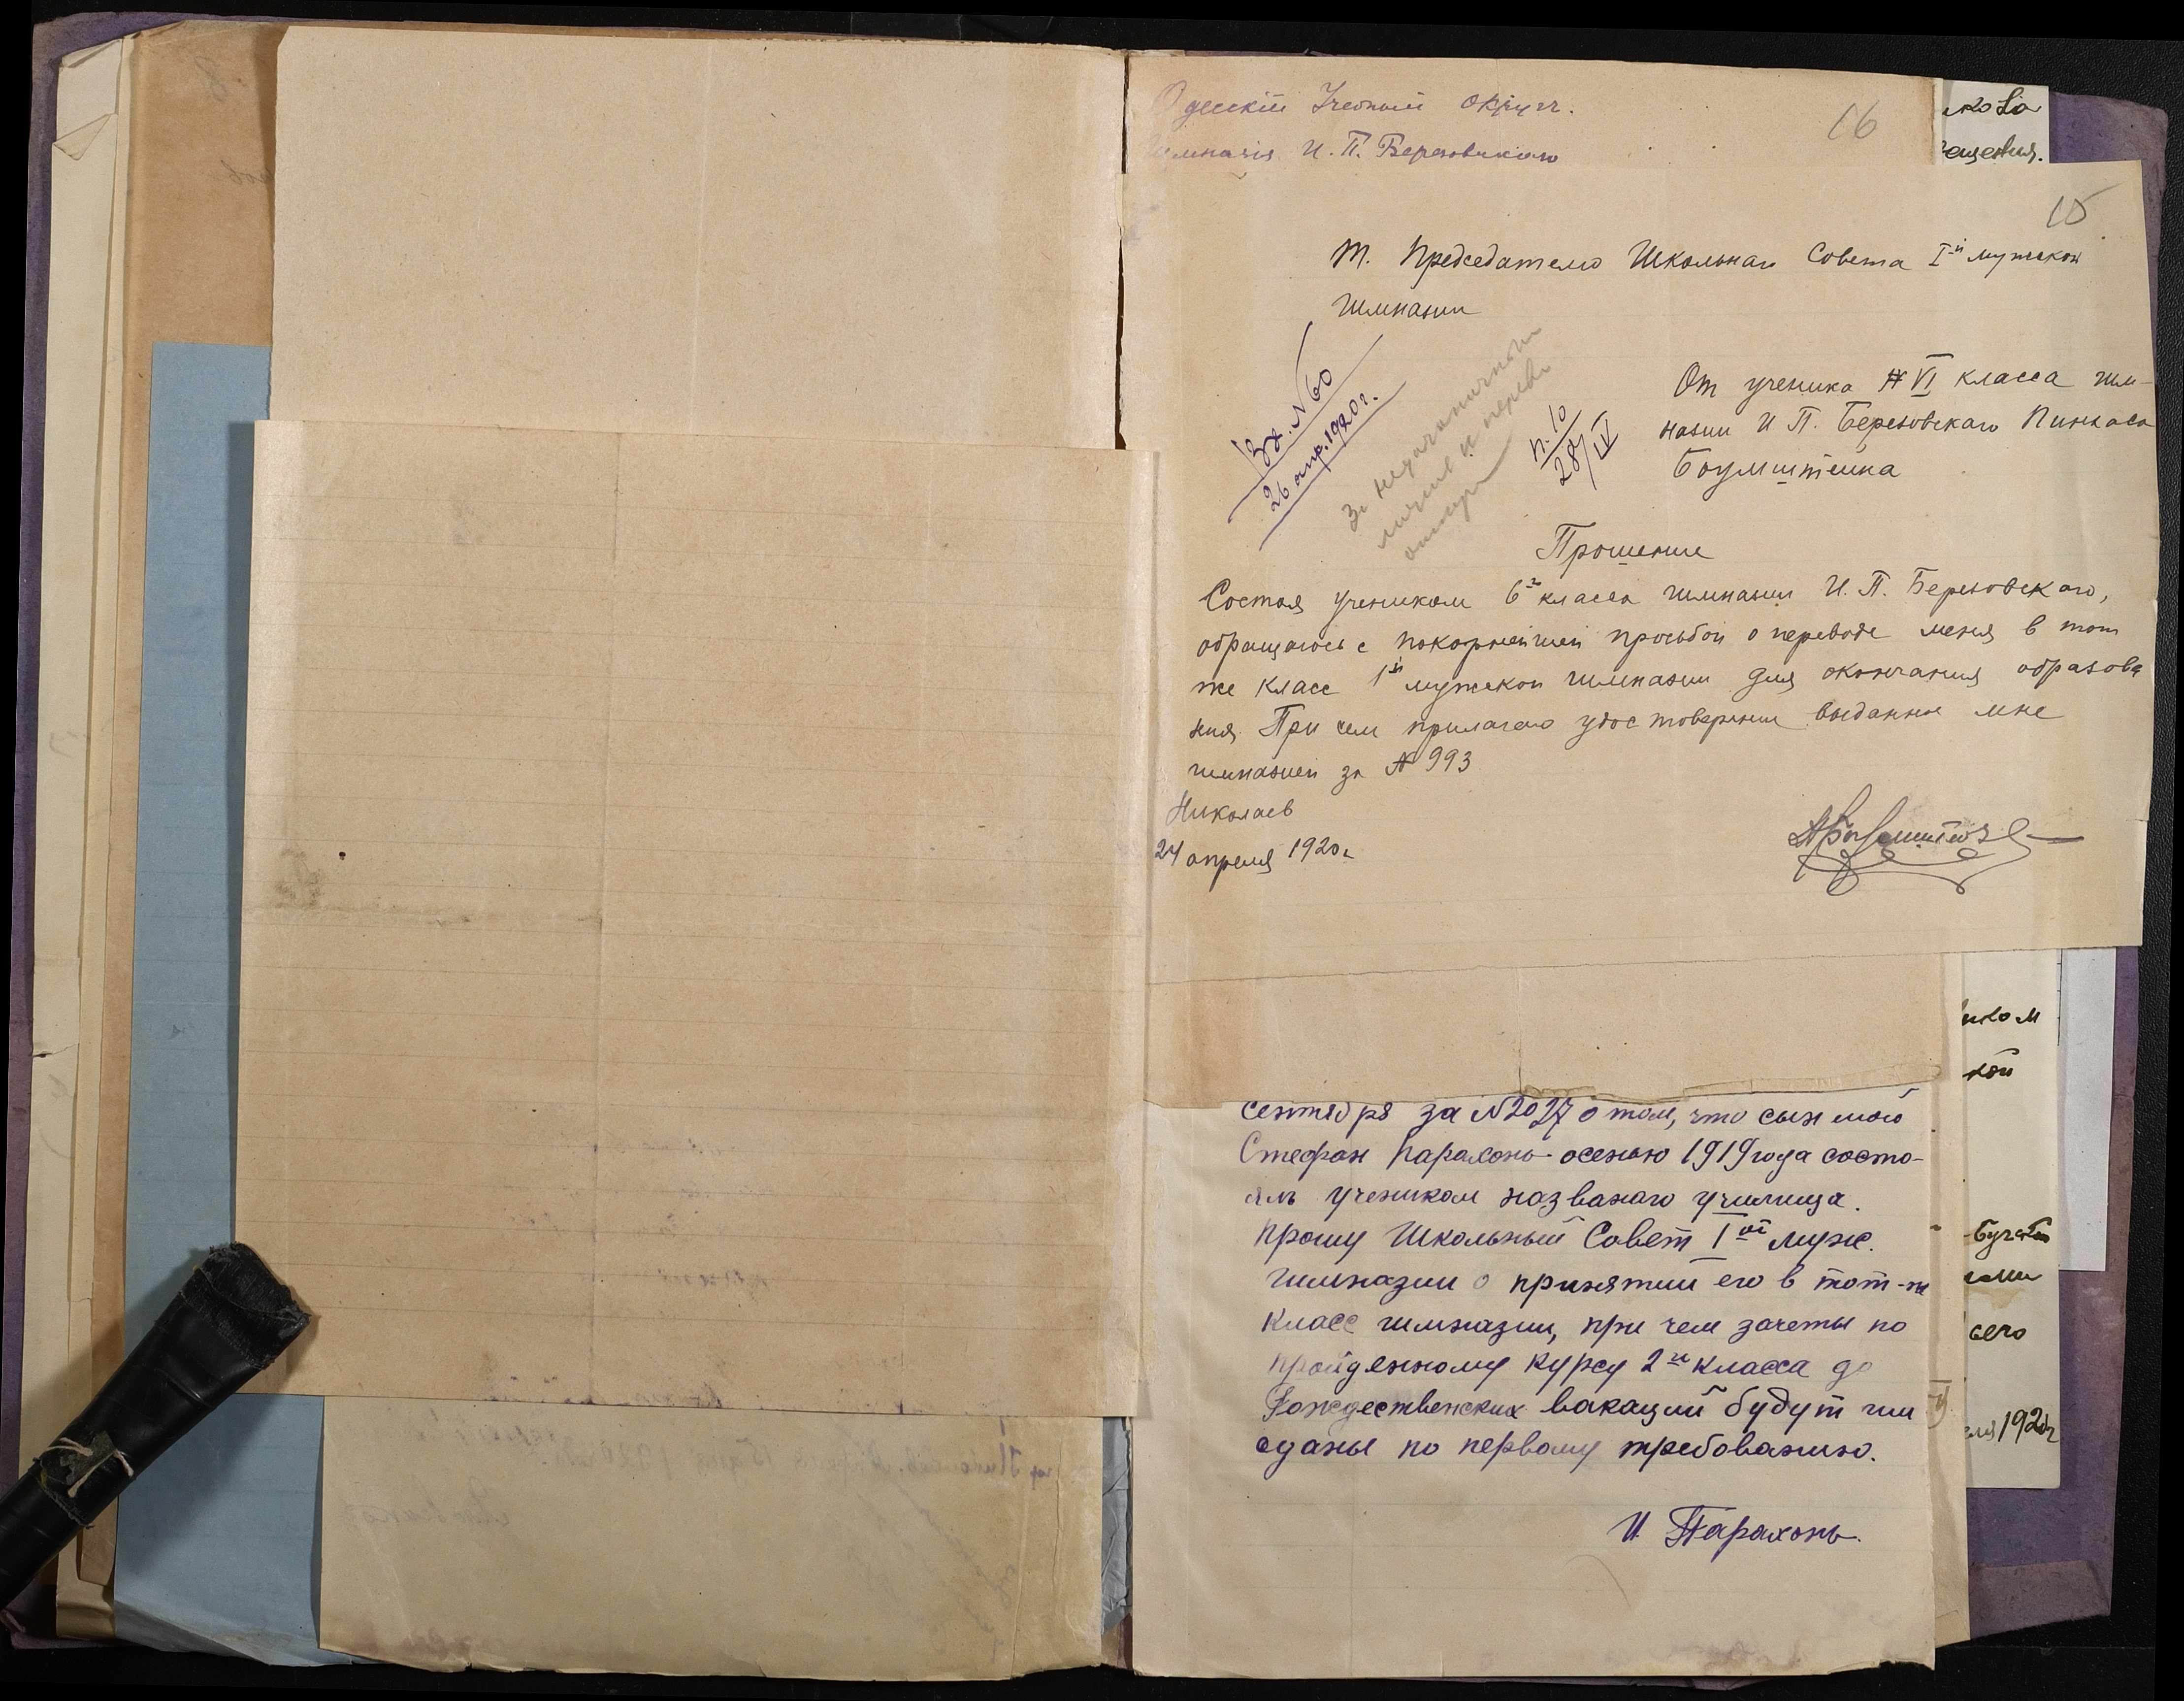 Одесскій Учебный Округъ.
Гимназія И. П. Березовскаго
16
15
Т. Председателю Школьнаго Совета I-й мужской
гимназии
Вх. N 60
26 апр. 1920 г.
п. 10
28/IV
От ученика VI класса гим-
назии И П. Березовскаго Пинхаса
Боумштейна
Прошение
Состоя учеником 6го класса гимназии И. П. Березовскаго,
обращаюсь с покорнейшей просьбой о переводе меня в тот
же класс 1й мужской гимназии для окончания образова
ния. При чем прилагаю удостоверение выданное мне
гимназией за № 993
Николаев
24 апреля 1920 г
сентября за N 2027 о том, что сын мой
Стефан Парахонь осенью 1919 года состо-
ялъ учеником названаго училища.
Прошу Школьный Совет I-ой муж.
гимназии о принятии его в тот-же
класс гимназии, при чем зачеты по
пройденному курсу 2го класса до
Рождественских вакаций будут им
сданы по первому требованию.
И. Парахонь.
ником
кой
сего
1920 г